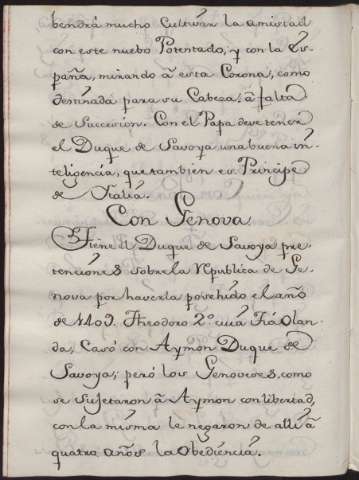 bendrá mucho Cultivar la amistad
con este nuebo Potentado, y con la Es-
paña, mirando â esta Corona, como
destinada para su Cabeza, â falta
de Succesion. Con el Papa deve tener
el Duque de Savoya una buena in-
teligencia, que tambien es Principe
de Italiá.
Con Genova
Tiene el Duque de Savoya pre-
tenciónes sobre la Republica de Ge-
nova por haverla posehido el año
de 1409. Theodoro 2º cuia Olan-
da, Casó con Aymon Duque de
Savoya; peró los Genoveses, como
se sujetaron â Aymon con libertad,
con la misma le negaron de alli â
quatro años la obediencia.